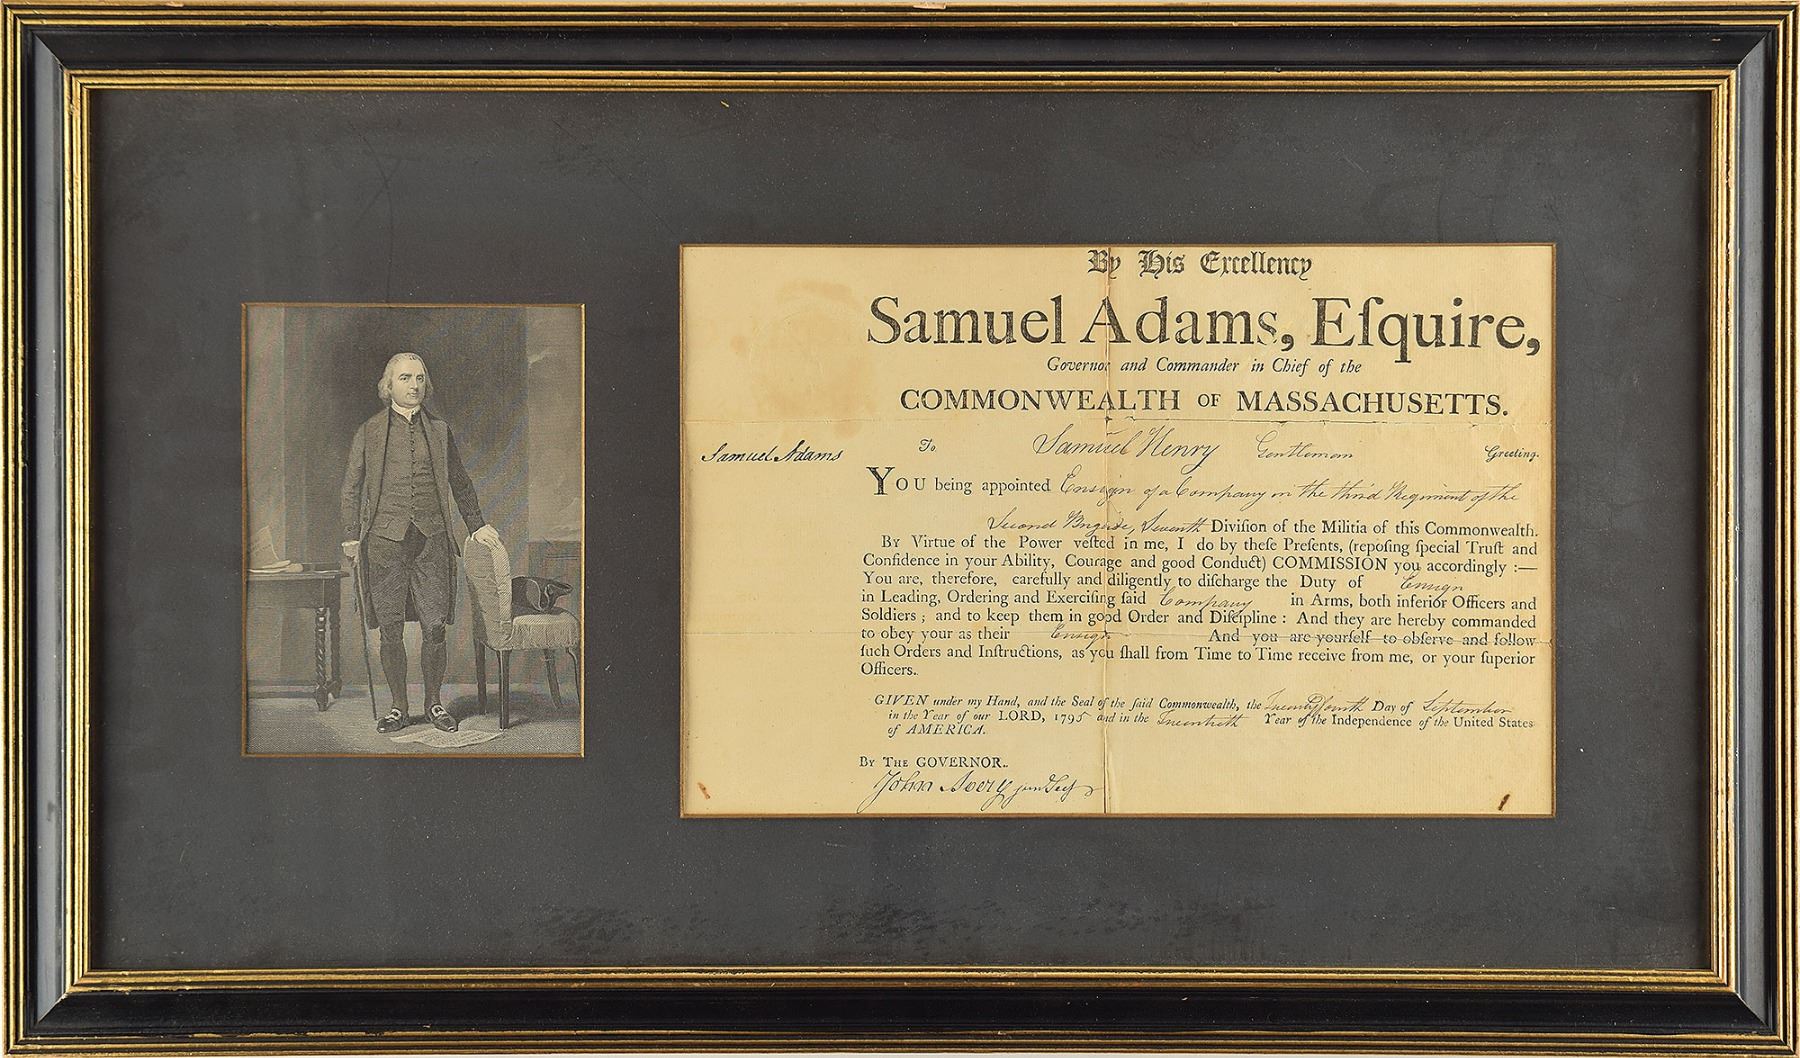 By His Excellency
Samuel Adams, Eſquire,
Governor and Commander in Chief of the
COMMONWEALTH OF MASSACHUSETTS.
Samuel Adams
To Samuel Henry Gentleman Greeting.
YOU being appointed Ensign of a Company in the third Regiment of the
Second Brigade, Seventh Diviſion of the Militia of this Commonwealth.
BY Virtue of the Power veſted in me, I do by theſe Preſents, (repoſing ſpecial Truſt and
Confidence in your Ability, Courage and good Conduct) COMMISSION you accordingly :—
You are, therefore, carefully and diligently to diſcharge the Duty of Ensign
in Leading, Ordering and Exerciſing ſaid Company in Arms, both inferior Officers and
Soldiers ; and to keep them in good Order and Diſcipline : And they are hereby commanded
to obey your as their Ensign And you are yourſelf to obſerve and follow
ſuch Orders and Inſtructions, as you ſhall from Time to Time receive from me, or your ſuperior
Officers.
GIVEN under my Hand, and the Seal of the ſaid Commonwealth, the Day of September
in the Year of our LORD, 1795 and in the Twentieth Year of the Independence of the United States
of AMERICA.
BY THE GOVERNOR.
John Avery jun Secy